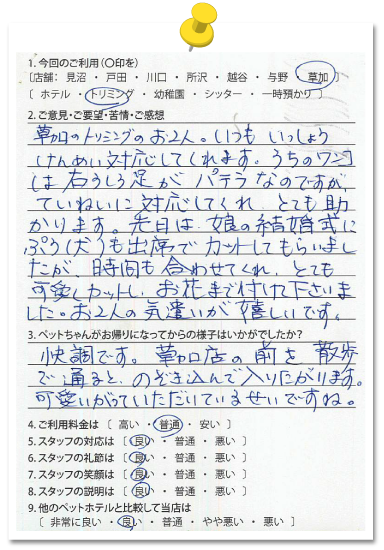 1. 今回のご利用(〇印を)
〔店舗： 見沼 ・ 戸田 ・ 川口 ・ 所沢 ・ 越谷 ・ 与野 ・ 草加 〕
〔 ホテル ・ トリミング ・ 幼稚園 ・ シッター ・ 一時預かり 〕
2. ご意見・ご要望・苦情・ご感想
草加のトリミングのお2人。いつもいっしょう
けんめい対応してくれます。うちのワンコ
は右うしろ足がパテラなのですが、
ていねいに対応してくれ、とても助
かります。先日は、娘の結婚式に
ぷう(犬)も出席でカットしてもらいまし
たが、時間も合わせてくれ、とても
可愛くカットし、お花まで付けて下さいま
した。お2人の気遣いが嬉しいです。
3. ペットちゃんがお帰りになってからの様子はいかがでしたか?
快調です。草加店の前を散歩
で通ると、のぞき込んで入りたがります。
可愛いがっていただいているせいですね。
4. ご利用料金は 〔 高い ・ 普通 ・ 安い 〕
5. スタッフの対応は 〔 良い ・ 普通 ・ 悪い 〕
6. スタッフの礼節は 〔 良い ・ 普通 ・ 悪い 〕
7. スタッフの笑顔は 〔 良い ・ 普通 ・ 悪い 〕
8. スタッフの説明は 〔 良い ・ 普通 ・ 悪い 〕
9. 他のペットホテルと比較して当店は
〔 非常に良い ・ 良い ・ 普通 ・ やや悪い ・ 悪い 〕